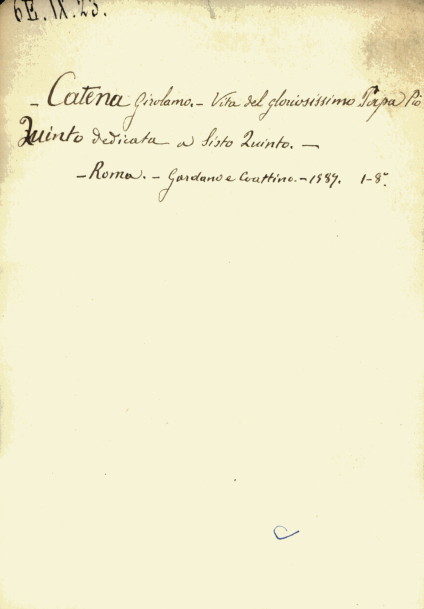 6E.IX.23.
- Catena Girolamo. - Vita del gloriosissimo Papa Pio
Quinto dedicata a Sisto Quinto. -
- Roma. - Gardano e Coattino. - 1587. 1-8°